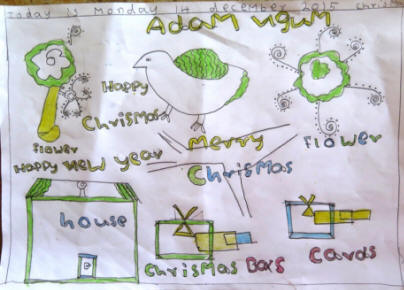 Today is Monday 14 december 2015 Chris
Adam ugum
Happy
ChrisMas
Merry
flower
flower
Happy New year
ChrisMas
house
ChrisMas Boxs
Cards